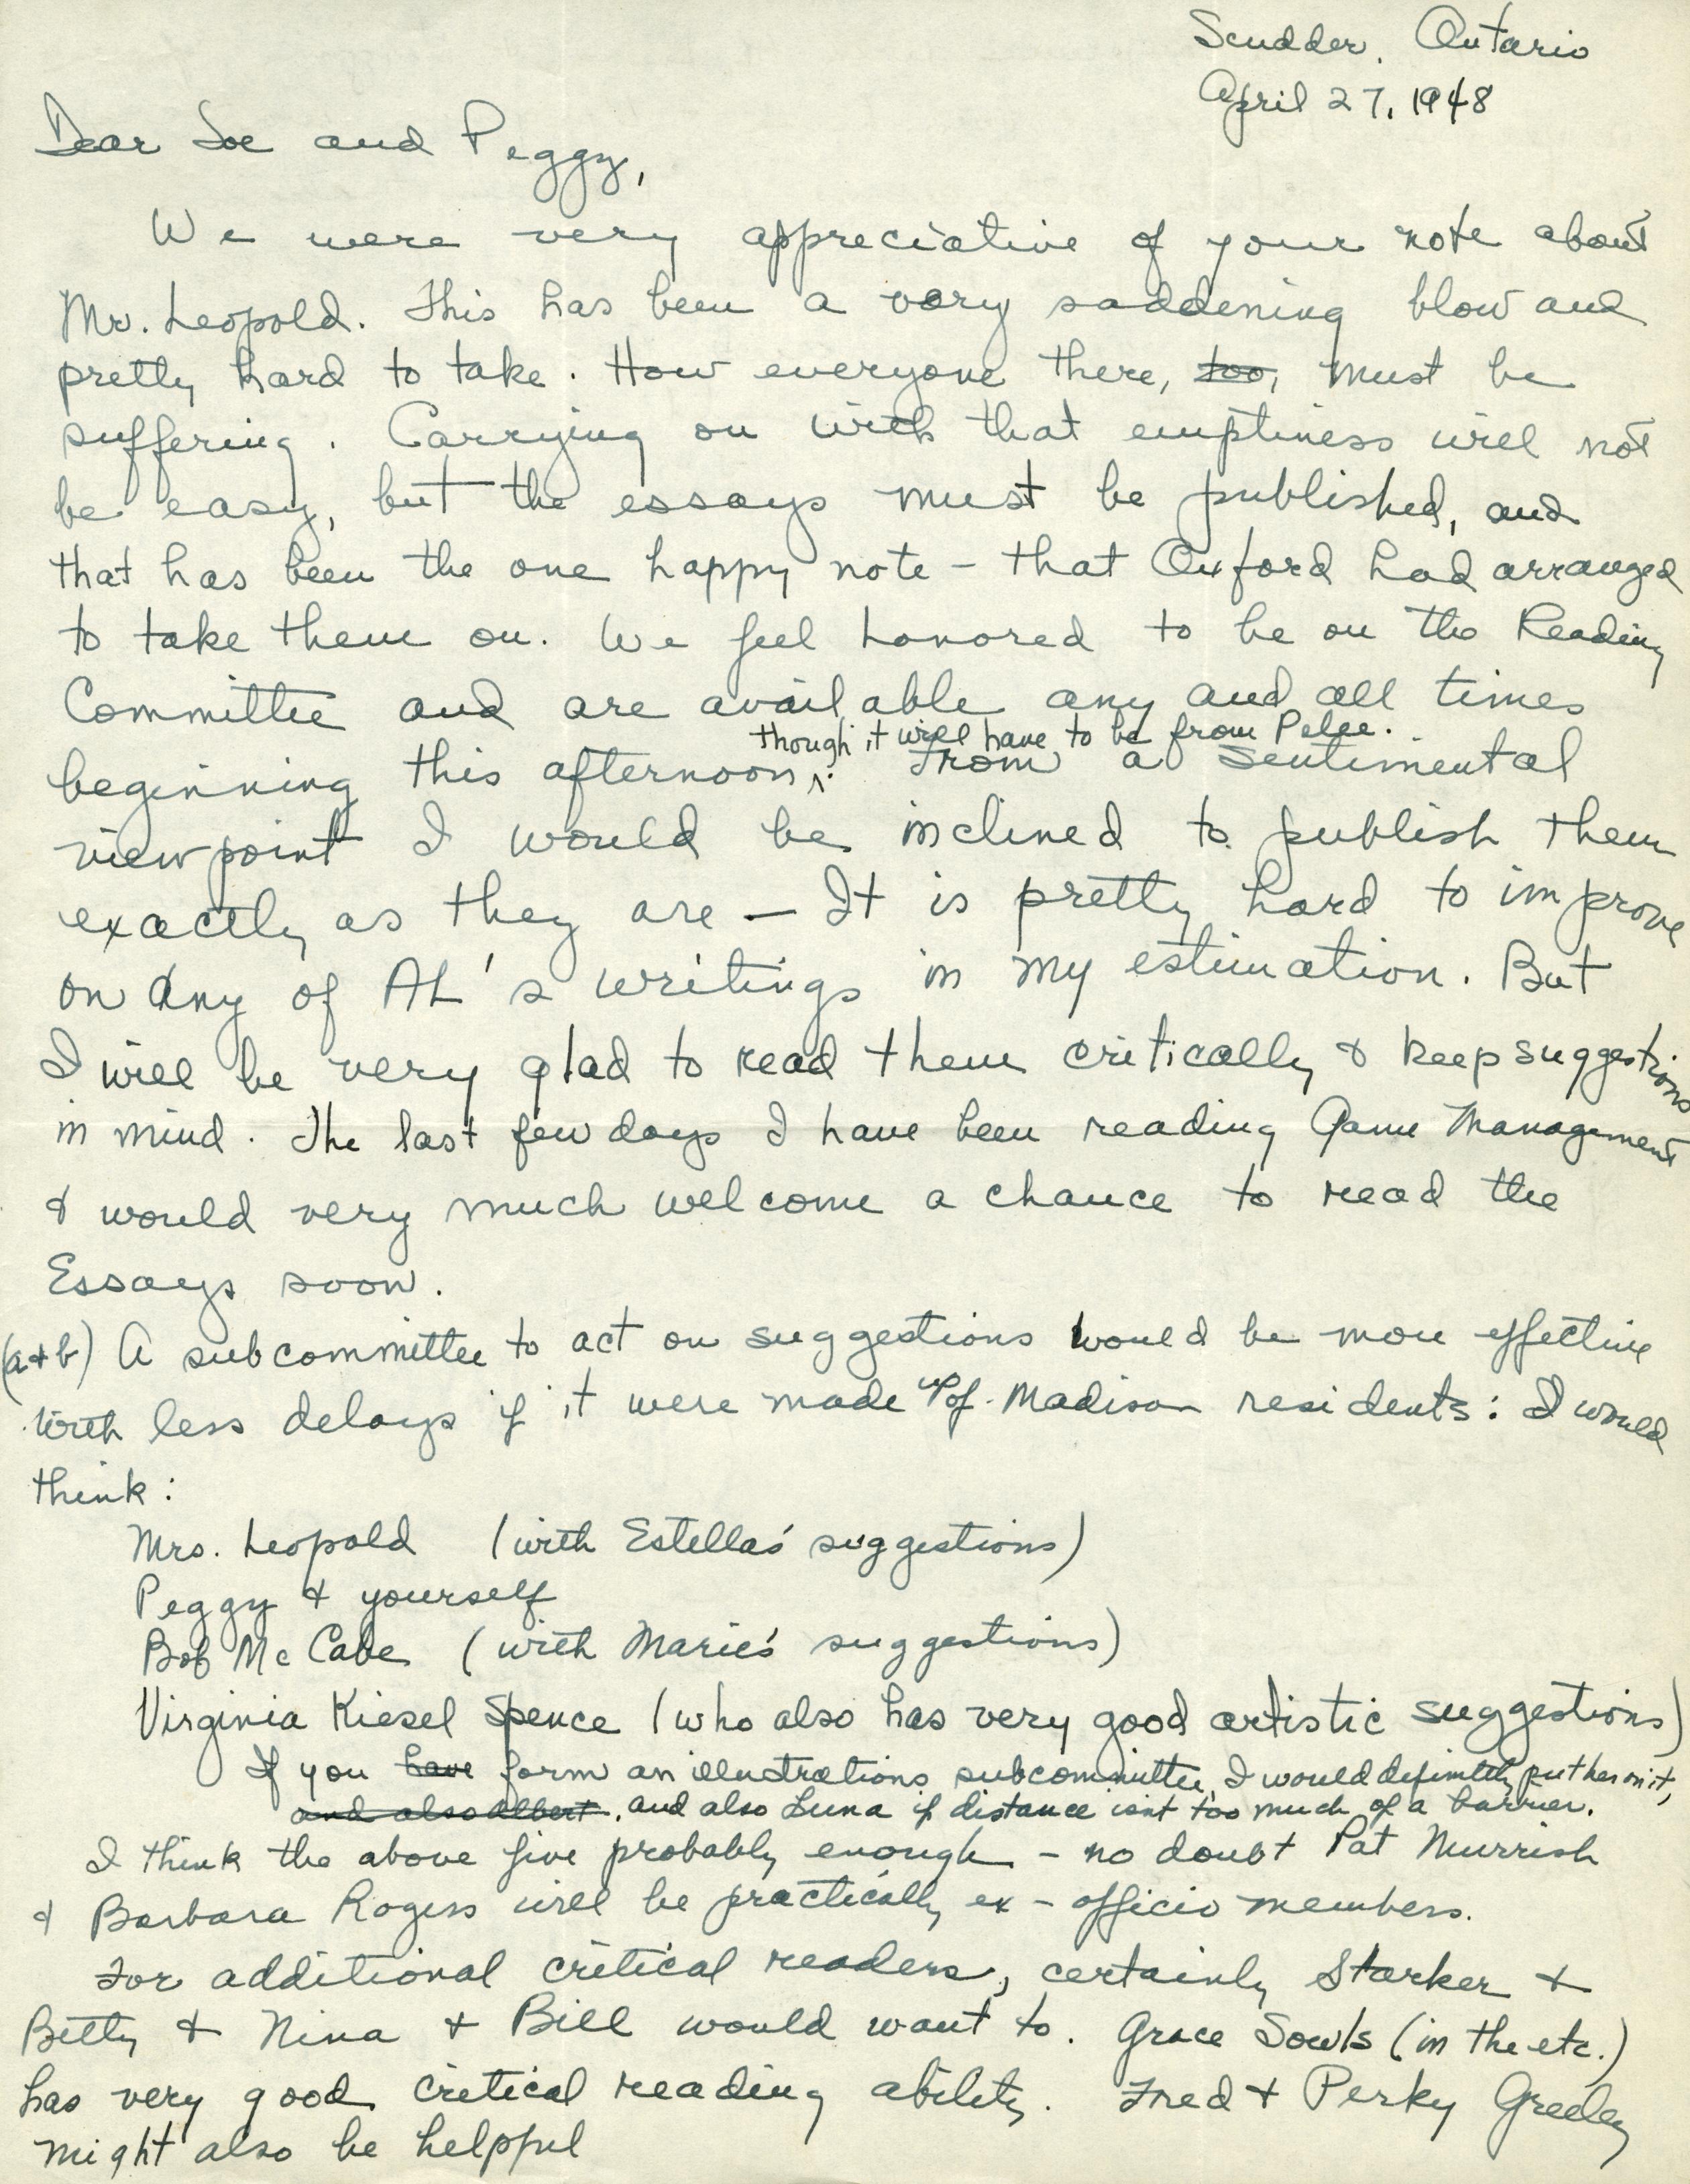 Scudder, Ontario
April 27, 1948
Dear Joe and Peggy,
We were very appreciative of your note about
Mr. Leopold. This has been a very saddening blow and
pretty hard to take. How everyone there, too, must be
suffering. Carrying on with that emptiness will not
be easy, but the essays must be published, and
that has been the one happy note - that Oxford had arranged
to take them on. We feel honored to be on the Reading
Committee and are available any and all times
though it will have to be from Pelee.
beginning this afternoon. From a sentimental
viewpoint I would be inclined to publish them
exactly as they are — It is pretty hard to improve
on any of AL's writings in my estimation. But
I will be very glad to read them critically & keep suggestions
in mind. The last few days I have been reading Game Management
& would very much welcome a chance to read the
Essays soon.
(a+b) A subcommittee to act on suggestions would be more effective
with less delays if it were made up of Madison residents: I would
think:
Mrs. Leopold (with Estella's suggestions)
Peggy & yourself
Bob McCabe (with Marie's suggestions)
Virginia Kiesel Spence (who also has very good artistic suggestions)
If you have form an illustrations subcommittee, I would definitely put her on it,
and also albert. and also Luna if distance isnt too much of a barrier.
I think the above five probably enough - no doubt Pat Murrish
& Barbara Rogers will be practically ex-officio members.
For additional critical readers, certainly Starker &
Betty & Nina & Bill would want to. Grace Sowls (in the etc.)
has very good critical reading ability. Fred & Perky Greeley
might also be helpful